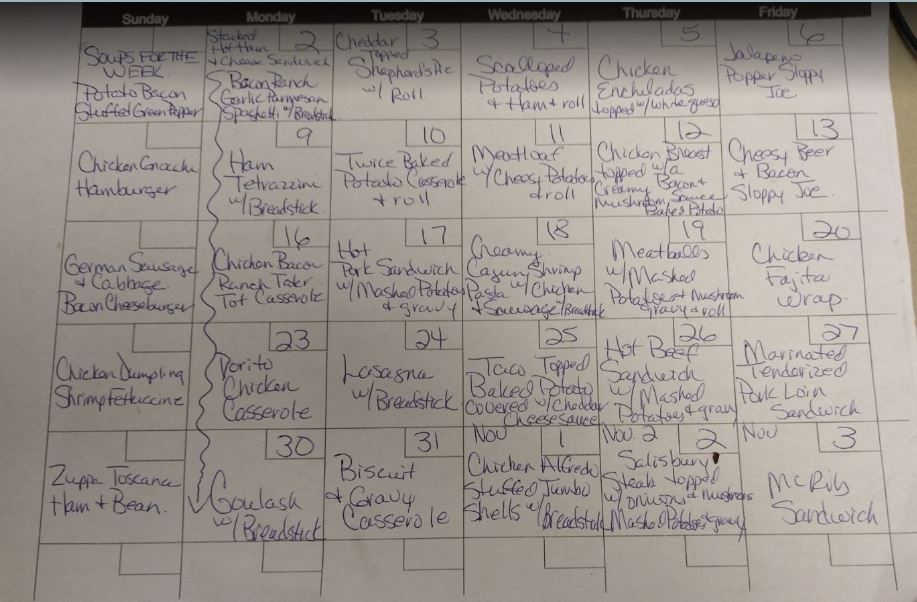 Sunday
Monday
Tuesday
Wednesday
Thursday
Friday
Soups for the
Week
Potato Bacon
Stuffed Green Pepper
2
Stacked
Hot Ham
+ Cheese Sandwich
Bacon Ranch
Garlic Parmesan
Spaghetti w/ Breadstick
3
Cheddar
Topped
Shepherd's Pie
w/ Roll
4
Scalloped
Potatoes
& Ham + roll
5
Chicken
Enchiladas
topped w/ white queso
6
Jalapeno
Popper Sloppy
Joe
Chicken Gnocchi
Hamburger
9
Ham
Tetrazzini
w/ Breadstick
10
Twice Baked
Potato Casserole
+ roll
11
Meatloaf
w/ Cheesy Potatoes
& roll
12
Chicken Breast
topped w/ a
Creamy Bacon +
Mushroom Sauce
Baked Potato
13
Cheesy Beer
& Bacon
Sloppy Joe
German Sausage
& Cabbage
Bacon Cheeseburger
16
Chicken Bacon
Ranch Tater
Tot Casserole
17
Hot
Pork Sandwich
w/ Mashed Potatoes
& gravy
18
Creamy
Cajun Shrimp
Pasta w/ Chicken
& Sausage w/ Breadstick
19
Meatballs
w/ Mashed
Potatoes + Mushroom
gravy + roll
20
Chicken
Fajita
Wrap
Chicken Dumpling
Shrimp Fettuccine
23
Dorito
Chicken
Casserole
24
Lasagna
w/ Breadstick
25
Taco Topped
Baked Potato
Covered w/ Cheddar
Cheese sauce
26
Hot Beef
Sandwich
w/ Mashed
Potatoes + gravy
27
Marinated
Tenderized
Pork Loin
Sandwich
Zuppa Toscana
Ham + Bean
30
Goulash
w/ Breadstick
31
Biscuit
& Gravy
Casserole
Nov 1
Chicken Alfredo
Stuffed Jumbo
Shells w/ Breadstick
Nov. 2 2
Salisbury
Steak topped
w/ onions & mushrooms
Mashed Potatoes + gravy
Nov 3
McRib
Sandwich